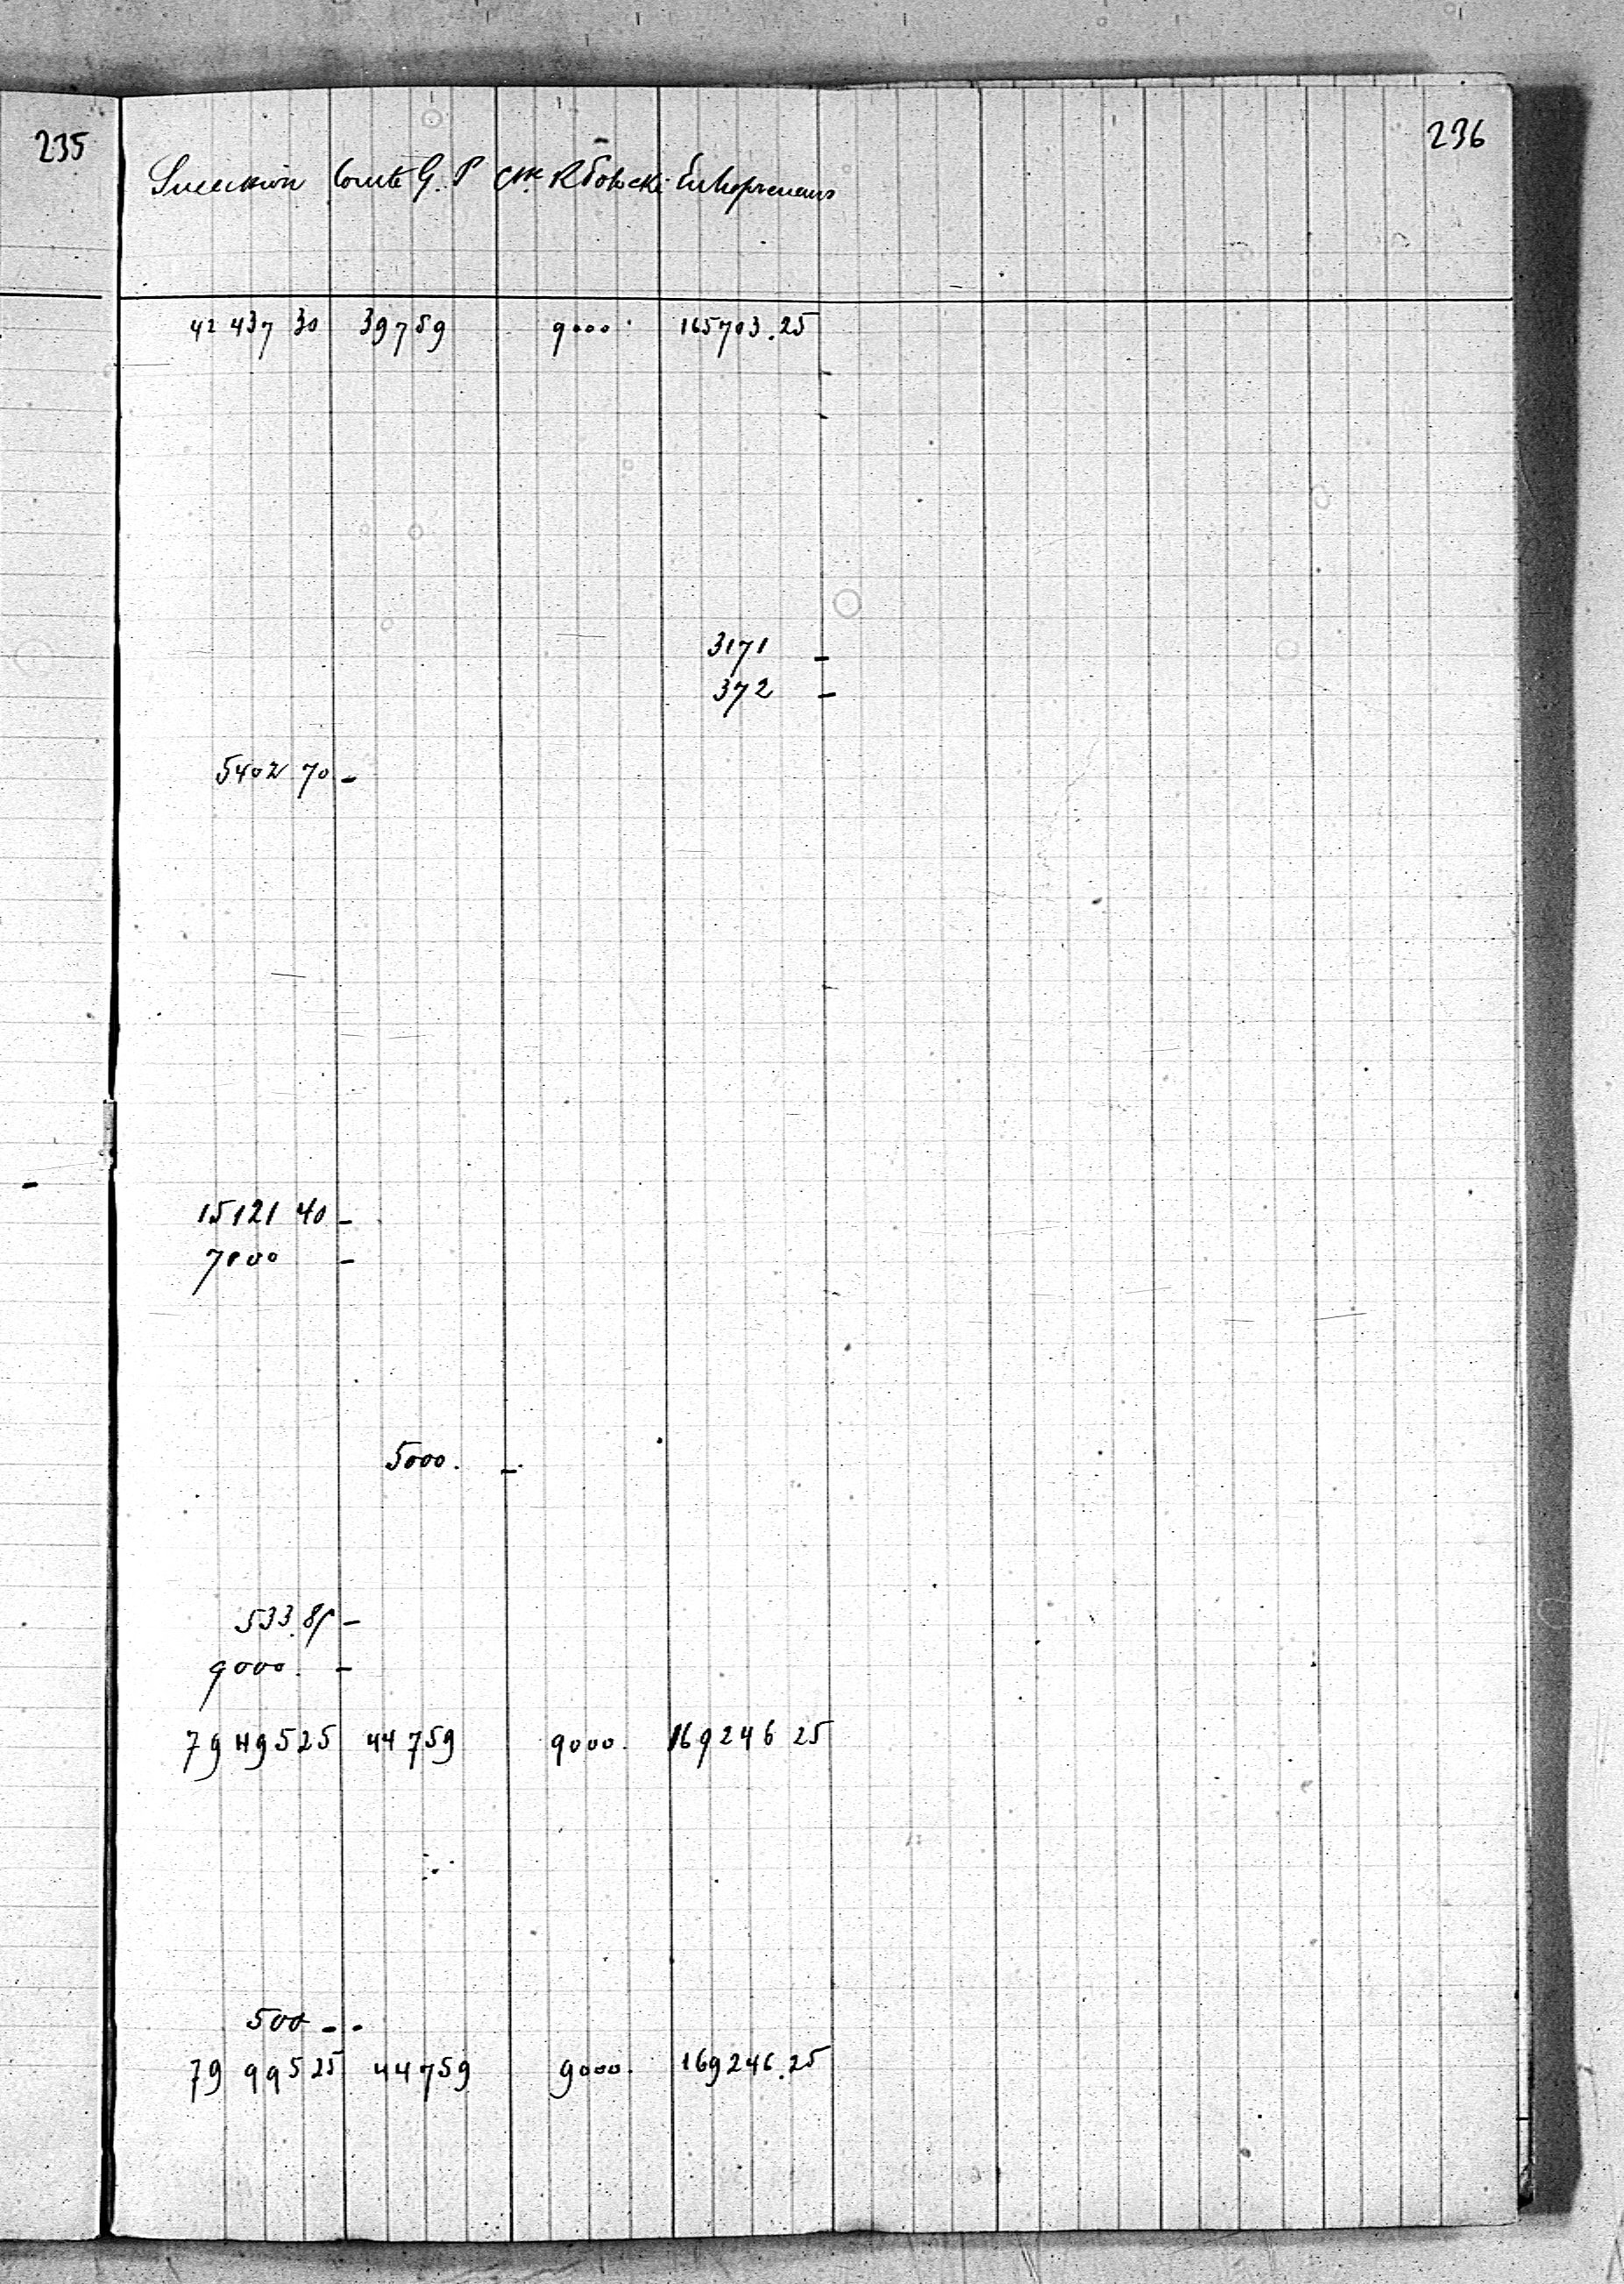 235
236
Succession Comte G. P Cte R Potocki Entrepreneurs
42 437 30 39759 9000 165703.25
3171 -
372 -
5402 70 -
15121 40 -
7000 -
5000. -
533.85 -
9000. -
79 495 25 44 759 9000. 169246 25
500 - -
79 995 25 44759 9000. 169246.25